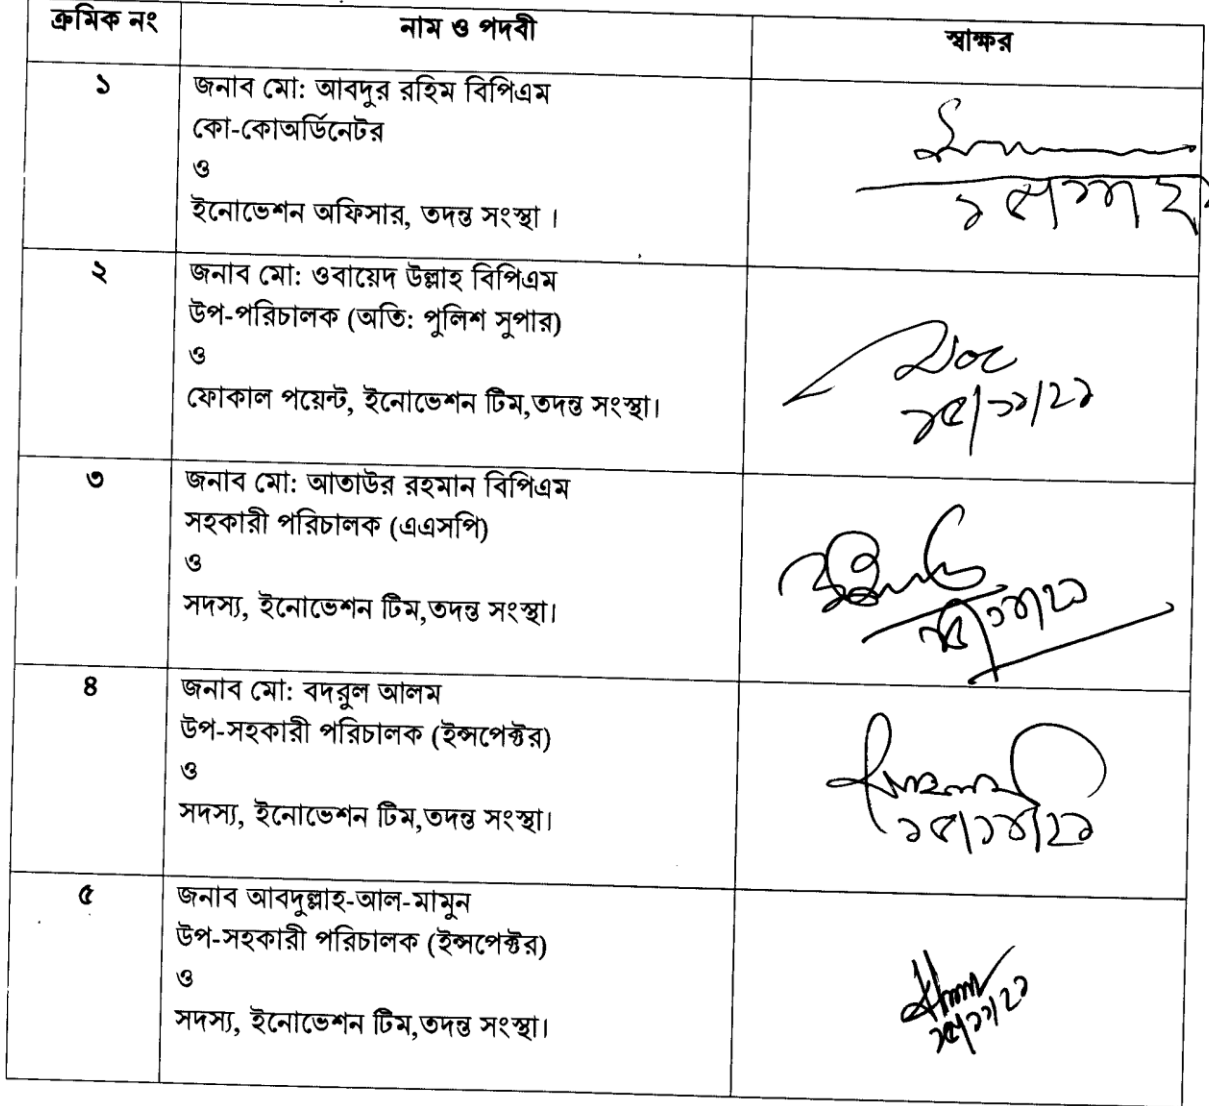 ক্রমিক নং নাম ও পদবী স্বাক্ষর
১ জনাব মো: আবদুর রহিম বিপিএম
কো-কোঅর্ডিনেটর
ও
ইনোভেশন অফিসার, তদন্ত সংস্থা ।
২ জনাব মো: ওবায়েদ উল্লাহ বিপিএম
উপ-পরিচালক (অতি: পুলিশ সুপার)
ও
ফোকাল পয়েন্ট, ইনোভেশন টিম,তদন্ত সংস্থা।
১৫/১১/২১
৩ জনাব মো: আতাউর রহমান বিপিএম
সহকারী পরিচালক (এএসপি)
ও
সদস্য, ইনোভেশন টিম,তদন্ত সংস্থা।
৪ জনাব মো: বদরুল আলম
উপ-সহকারী পরিচালক (ইন্সপেক্টর)
ও
সদস্য, ইনোভেশন টিম,তদন্ত সংস্থা।
১৫/১১/২১
৫ জনাব আবদুল্লাহ-আল-মামুন
উপ-সহকারী পরিচালক (ইন্সপেক্টর)
ও
সদস্য, ইনোভেশন টিম,তদন্ত সংস্থা।
১৫/১১/২১